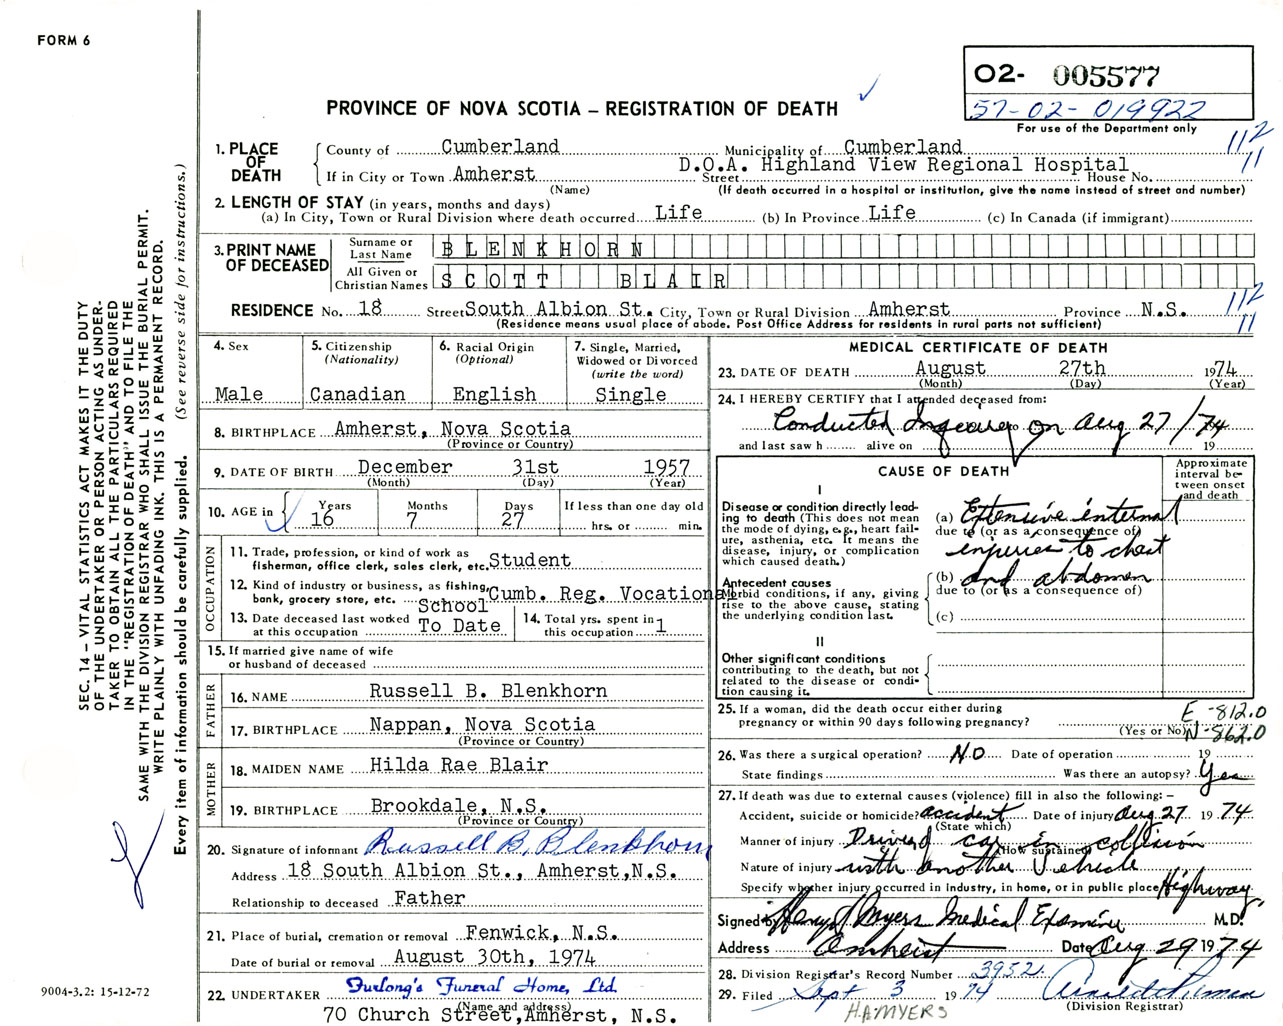 FORM 6
02- 005577
57-02-019922
For use of the Department only
PROVINCE OF NOVA SCOTIA – REGISTRATION OF DEATH
SEC. 14 – VITAL STATISTICS ACT MAKES IT THE DUTY
OF THE UNDERTAKER OR PERSON ACTING AS UNDER-
TAKER TO OBTAIN ALL THE PARTICULARS REQUIRED
IN THE "REGISTRATION OF DEATH" AND TO FILE THE
SAME WITH THE DIVISION REGISTRAR WHO SHALL ISSUE THE BURIAL PERMIT.
WRITE PLAINLY WITH UNFADING INK. THIS IS A PERMANENT RECORD.
Every item of information should be carefully supplied. (See reverse side for instructions.)
1. PLACE OF DEATH
County of Cumberland Municipality of Cumberland 112
If in City or Town Amherst Street D.O.A. Highland View Regional Hospital House No. 11
(Name) (If death occurred in a hospital or institution, give the name instead of street and number)
2. LENGTH OF STAY (in years, months and days)
(a) In City, Town or Rural Division where death occurred Life (b) In Province Life (c) In Canada (if immigrant)
3. PRINT NAME OF DECEASED
Surname or Last Name BLENKHORN
All Given or Christian Names SCOTT BLAIR
RESIDENCE No. 18 Street South Albion St. City, Town or Rural Division Amherst Province N.S. 112 11
(Residence means usual place of abode. Post Office Address for residents in rural parts not sufficient)
4. Sex
Male
5. Citizenship (Nationality)
Canadian
6. Racial Origin (Optional)
English
7. Single, Married, Widowed or Divorced (write the word)
Single
8. BIRTHPLACE Amherst, Nova Scotia
(Province or Country)
9. DATE OF BIRTH December 31st 1957
(Month) (Day) (Year)
10. AGE in Years 16 Months 7 Days 27 If less than one day old hrs. or min.
OCCUPATION
11. Trade, profession, or kind of work as fisherman, office clerk, sales clerk, etc. Student
12. Kind of industry or business, as fishing, bank, grocery store, etc. Cumb. Reg. Vocational School
13. Date deceased last worked at this occupation To Date
14. Total yrs. spent in this occupation 1
15. If married give name of wife or husband of deceased
FATHER
16. NAME Russell B. Blenkhorn
17. BIRTHPLACE Nappan, Nova Scotia
(Province or Country)
MOTHER
18. MAIDEN NAME Hilda Rae Blair
19. BIRTHPLACE Brookdale, N.S.
(Province or Country)
20. Signature of informant Russell B. Blenkhorn
Address 18 South Albion St., Amherst, N.S.
Relationship to deceased Father
21. Place of burial, cremation or removal Fenwick, N.S.
Date of burial or removal August 30th, 1974
22. UNDERTAKER Furlong's Funeral Home, Ltd.
(Name and address)
70 Church Street, Amherst, N.S.
9004-3.2: 15-12-72
MEDICAL CERTIFICATE OF DEATH
23. DATE OF DEATH August 27th 1974
(Month) (Day) (Year)
24. I HEREBY CERTIFY that I attended deceased from:
Conducted Inquiry on Aug 27/74
and last saw h alive on 19
CAUSE OF DEATH
Approximate interval between onset and death
I
Disease or condition directly leading to death (This does not mean the mode of dying, e.g., heart failure, asthenia, etc. It means the disease, injury, or complication which caused death.)
(a) Extensive internal
due to (or as a consequence of)
injuries to chest
Antecedent causes
Morbid conditions, if any, giving rise to the above cause, stating the underlying condition last.
(b) and abdomen
due to (or as a consequence of)
(c)
II
Other significant conditions contributing to the death, but not related to the disease or condition causing it.
25. If a woman, did the death occur either during pregnancy or within 90 days following pregnancy?
(Yes or No)
E-812.0
N-862.0
26. Was there a surgical operation? No Date of operation 19
State findings Was there an autopsy? Yes
27. If death was due to external causes (violence) fill in also the following: –
Accident, suicide or homicide? accident Date of injury Aug 27 1974
(State which)
Manner of injury Driver of car in collision
(How sustained)
Nature of injury with another Vehicle
Specify whether injury occurred in industry, in home, or in public place Highway
Signed by Myers Medical Examiner M.D.
Address Amherst Date Aug 29 1974
28. Division Registrar's Record Number 3952
29. Filed Sept 3 1974
(Division Registrar)
H.A. MYERS